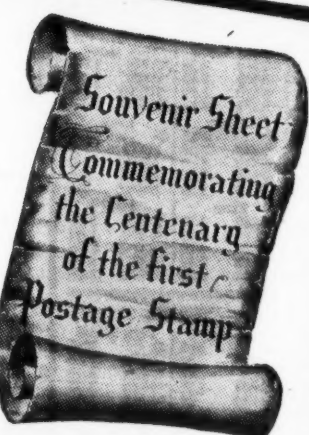 Souvenir Sheet
Commemorating
the Centenary
of the first
Postage Stamp